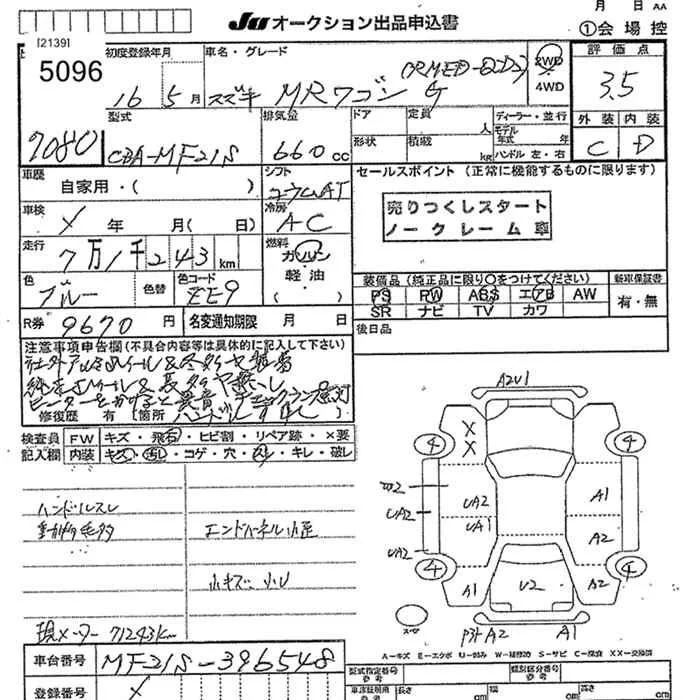 月 日 AA
JU オークション出品申込書 ①会場控
[2139]
5096
初度登録年月 車名・グレード 評価点
16 5月 スズキ MRワゴン G 2WD 4WD 3.5
型式 排気量 ドア 定員 人 ディーラー・並行 外装 内装
7080 CBA-MF21S 660cc 形状 積載 kg モデル年式 年 ハンドル 左・右 C D
車歴 自家用・( ) シフト コラムAT セールスポイント (正常に機能するものに限ります)
車検 × 年 月( 日) 冷房 AC 売りつくしスタート
ノークレーム車
走行 7万1千243km 燃料 ガソリン
軽・油
( )
色 ブルー 色替 色コード ZE9 装備品 (純正品に限り○をつけてください) 新車保証書
PS PW ABS エアB AW 有・無
SR ナビ TV カワ
R券 9670円 名変通知期限 月 日 後日品
注意事項申告欄 (不具合内容等は具体的に記入して下さい)
修復歴 有 (箇所 )
検査員 FW キズ・飛石・ヒビ割・リペア跡・×要
記入欄 内装 キズ・汚れ・コゲ・穴・スレ・キレ・破レ
ハンドルスレ
動物毛多 エンドパネル小歪
小キズ 小U
現メーター 71243km
A2U1
4 X X 4
UA2 UA2 A1
UA2 UA1 A2
4 A1 U2 A2 4
スペア A2 A1
A-キズ E-エクボ U-凹み W-補修跡 S-サビ C-腐食 XX-交換済
車台番号 MF21S-396548
型式指定番号 参考 類別区分番号 参考
登録番号 ×
車滓証明用 参考 長さ cm 幅 cm 高さ cm